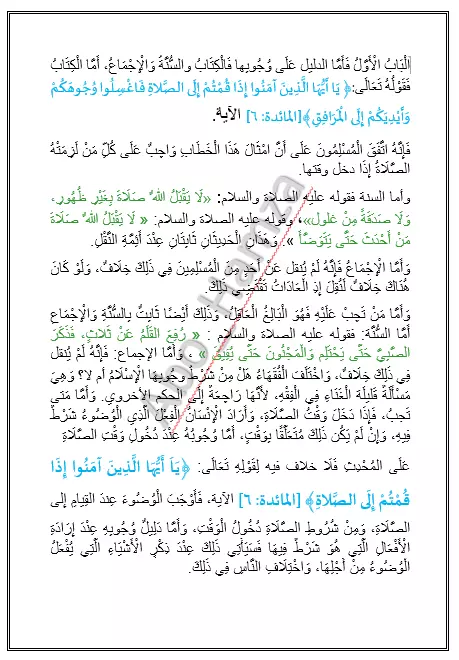 الْبَابُ الْأَوَّلُ فَأَمَّا الدليل عَلَى وُجُوبِها فَالْكِتَابُ والسُّنَّةُ وَالْإِجْمَاعُ، أَمَّا الْكِتَابُ
فَقَوْلُهُ تَعَالَى:﴿ يَا أَيُّهَا الَّذِينَ آمَنُوا إِذَا قُمْتُمْ إِلَى الصَّلاةِ فَاغْسِلُوا وُجُوهَكُمْ
وَأَيْدِيَكُمْ إِلَى الْمَرَافِقِ﴾[المائدة: ٦] الآية.
فَإِنَّهُ اتَّفَقَ الْمُسْلِمُونَ عَلَى أَنَّ امْتَثَالَ هَذَا الْخَطَّابِ وَاجِبٌ عَلَى كُلِّ مَنْ لَزِمَتْهُ
الصَّلَاةُ إِذَا دخل وقتها.
وأما السنة فقوله عليه الصلاة والسلام: «لَا يَقْبَلُ اللهُ صَلَاةً بِغَيْرِ طُهُورٍ،
وَلَا صَدَقَةً مِنْ غلول»، وقوله عليه الصلاة والسلام: « لَا يَقْبَلُ اللهُ صَلَاةَ
مَنْ أَحْدَثَ حَتَّى يَتَوَضَّأَ ». وَهَذَانِ الْحَدِيثَانِ ثَابِتَانِ عِنْدَ أَئِمَّةِ النَّقْلِ.
وَأَمَّا الْإِجْمَاعُ فَإِنَّهُ لَمْ يُنقل عَنْ أَحَدٍ مِنَ الْمُسْلِمِينَ فِي ذَلِكَ خِلَافٌ، وَلَوْ كَانَ
هُنَاكَ خِلَافٌ لَنُقِلَ إِذِ الْعَادَاتُ تَقْتَضِي ذَلِكَ.
وَأَمَّا مَنْ تَجِبُ عَلَيْهِ فَهُوَ الْبَالِغُ الْعَاقِلُ، وَذَلِكَ أَيْضًا ثَابِتٌ بِالسُّنَّةِ وَالْإِجْمَاعِ
أَمَّا السُّنَّة: فقوله عليه الصلاة والسلام : « رُفِعَ القَلَمُ عَنْ ثَلَاثٍ، فَذَكَرَ
الصَّبِيَّ حَتَّى يَحْتَلِمَ وَالْمَجْنُونَ حَتَّى يُفِيقَ » ، وَأَمَّا الإجماع: فَإِنَّهُ لَمْ يُنقل
فِي ذَلِكَ خِلَافٌ، وَاخْتَلَفَ الْفُقَهَاءُ هَلْ مِنْ شَرْطِ وُجُوبِهَا الْإِسْلَامُ أم لا؟ وَهِيَ
مَسْأَلَةٌ قَلِيلَةُ الْغَنَاءِ فِي الْفِقْهِ، لِأَنَّهَا رَاجِعَةٌ إِلَى الحكم الأخروي. وَأَمَّا مَتَى
تَجِبُ، فَإِذَا دَخَلَ وَقْتُ الصَّلَاةِ، وَأَرَادَ الْإِنْسَانُ الْفِعْلَ الَّذِي الْوُضُوءُ شَرْطٌ
فِيهِ، وَإِنْ لَمْ يَكُنْ ذَلِكَ مُتَعَلِّقًا بِوَقْتٍ، أَمَّا وُجُوبُهُ عِنْدَ دُخُولِ وَقْتِ الصَّلَاةِ
عَلَى الْمُحْدِثِ فَلَا خلاف فيه لِقَوْلِهِ تَعَالَى: ﴿يَا أَيُّهَا الَّذِينَ آمَنُوا إِذَا
قُمْتُمْ إِلَى الصَّلاةِ﴾ [المائدة: ٦] الآية، فَأَوْجَبَ الْوُضُوءَ عِنْدَ القِيَامِ إلى
الصَّلَاةِ، وَمِنْ شُرُوطِ الصَّلَاةِ دُخُولُ الْوَقْتِ، وَأَمَّا دَلِيلُ وُجُوبِهِ عِنْدَ إِرَادَةِ
الْأَفْعَالِ الَّتِي هُوَ شَرْطٌ فِيهَا فَسَيَأْتِي ذَلِكَ عِنْدَ ذِكْرِ الْأَشْيَاءِ الَّتِي يُفْعَلُ
الْوُضُوءُ مِنْ أَجْلِهَا، وَاخْتِلَافِ النَّاسِ فِي ذَلِكَ.